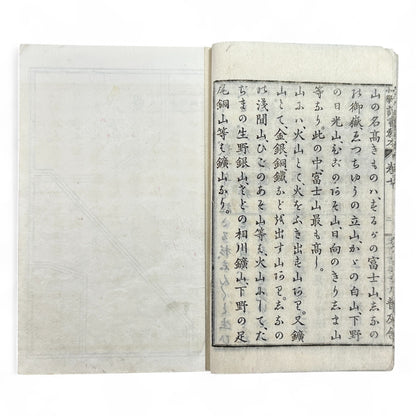 山の名高きものハ、するがの富士山、志なの
の御嶽、ゑつちゆうの立山、かゞの白山、下野
の日光山、のあそ山、日向のきり志ま山
等なり此の中富士山最も高し。
山にハ火山とて火をふき出す山あり。又鑛
山とて、金銀銅鐵などを出す山あり。志なの
の淺間山、ひごのあそ山等も火山にして、た
ぢまの生野銀山、さどの相川鑛山、下野の足
尾銅山等も鑛山なり。